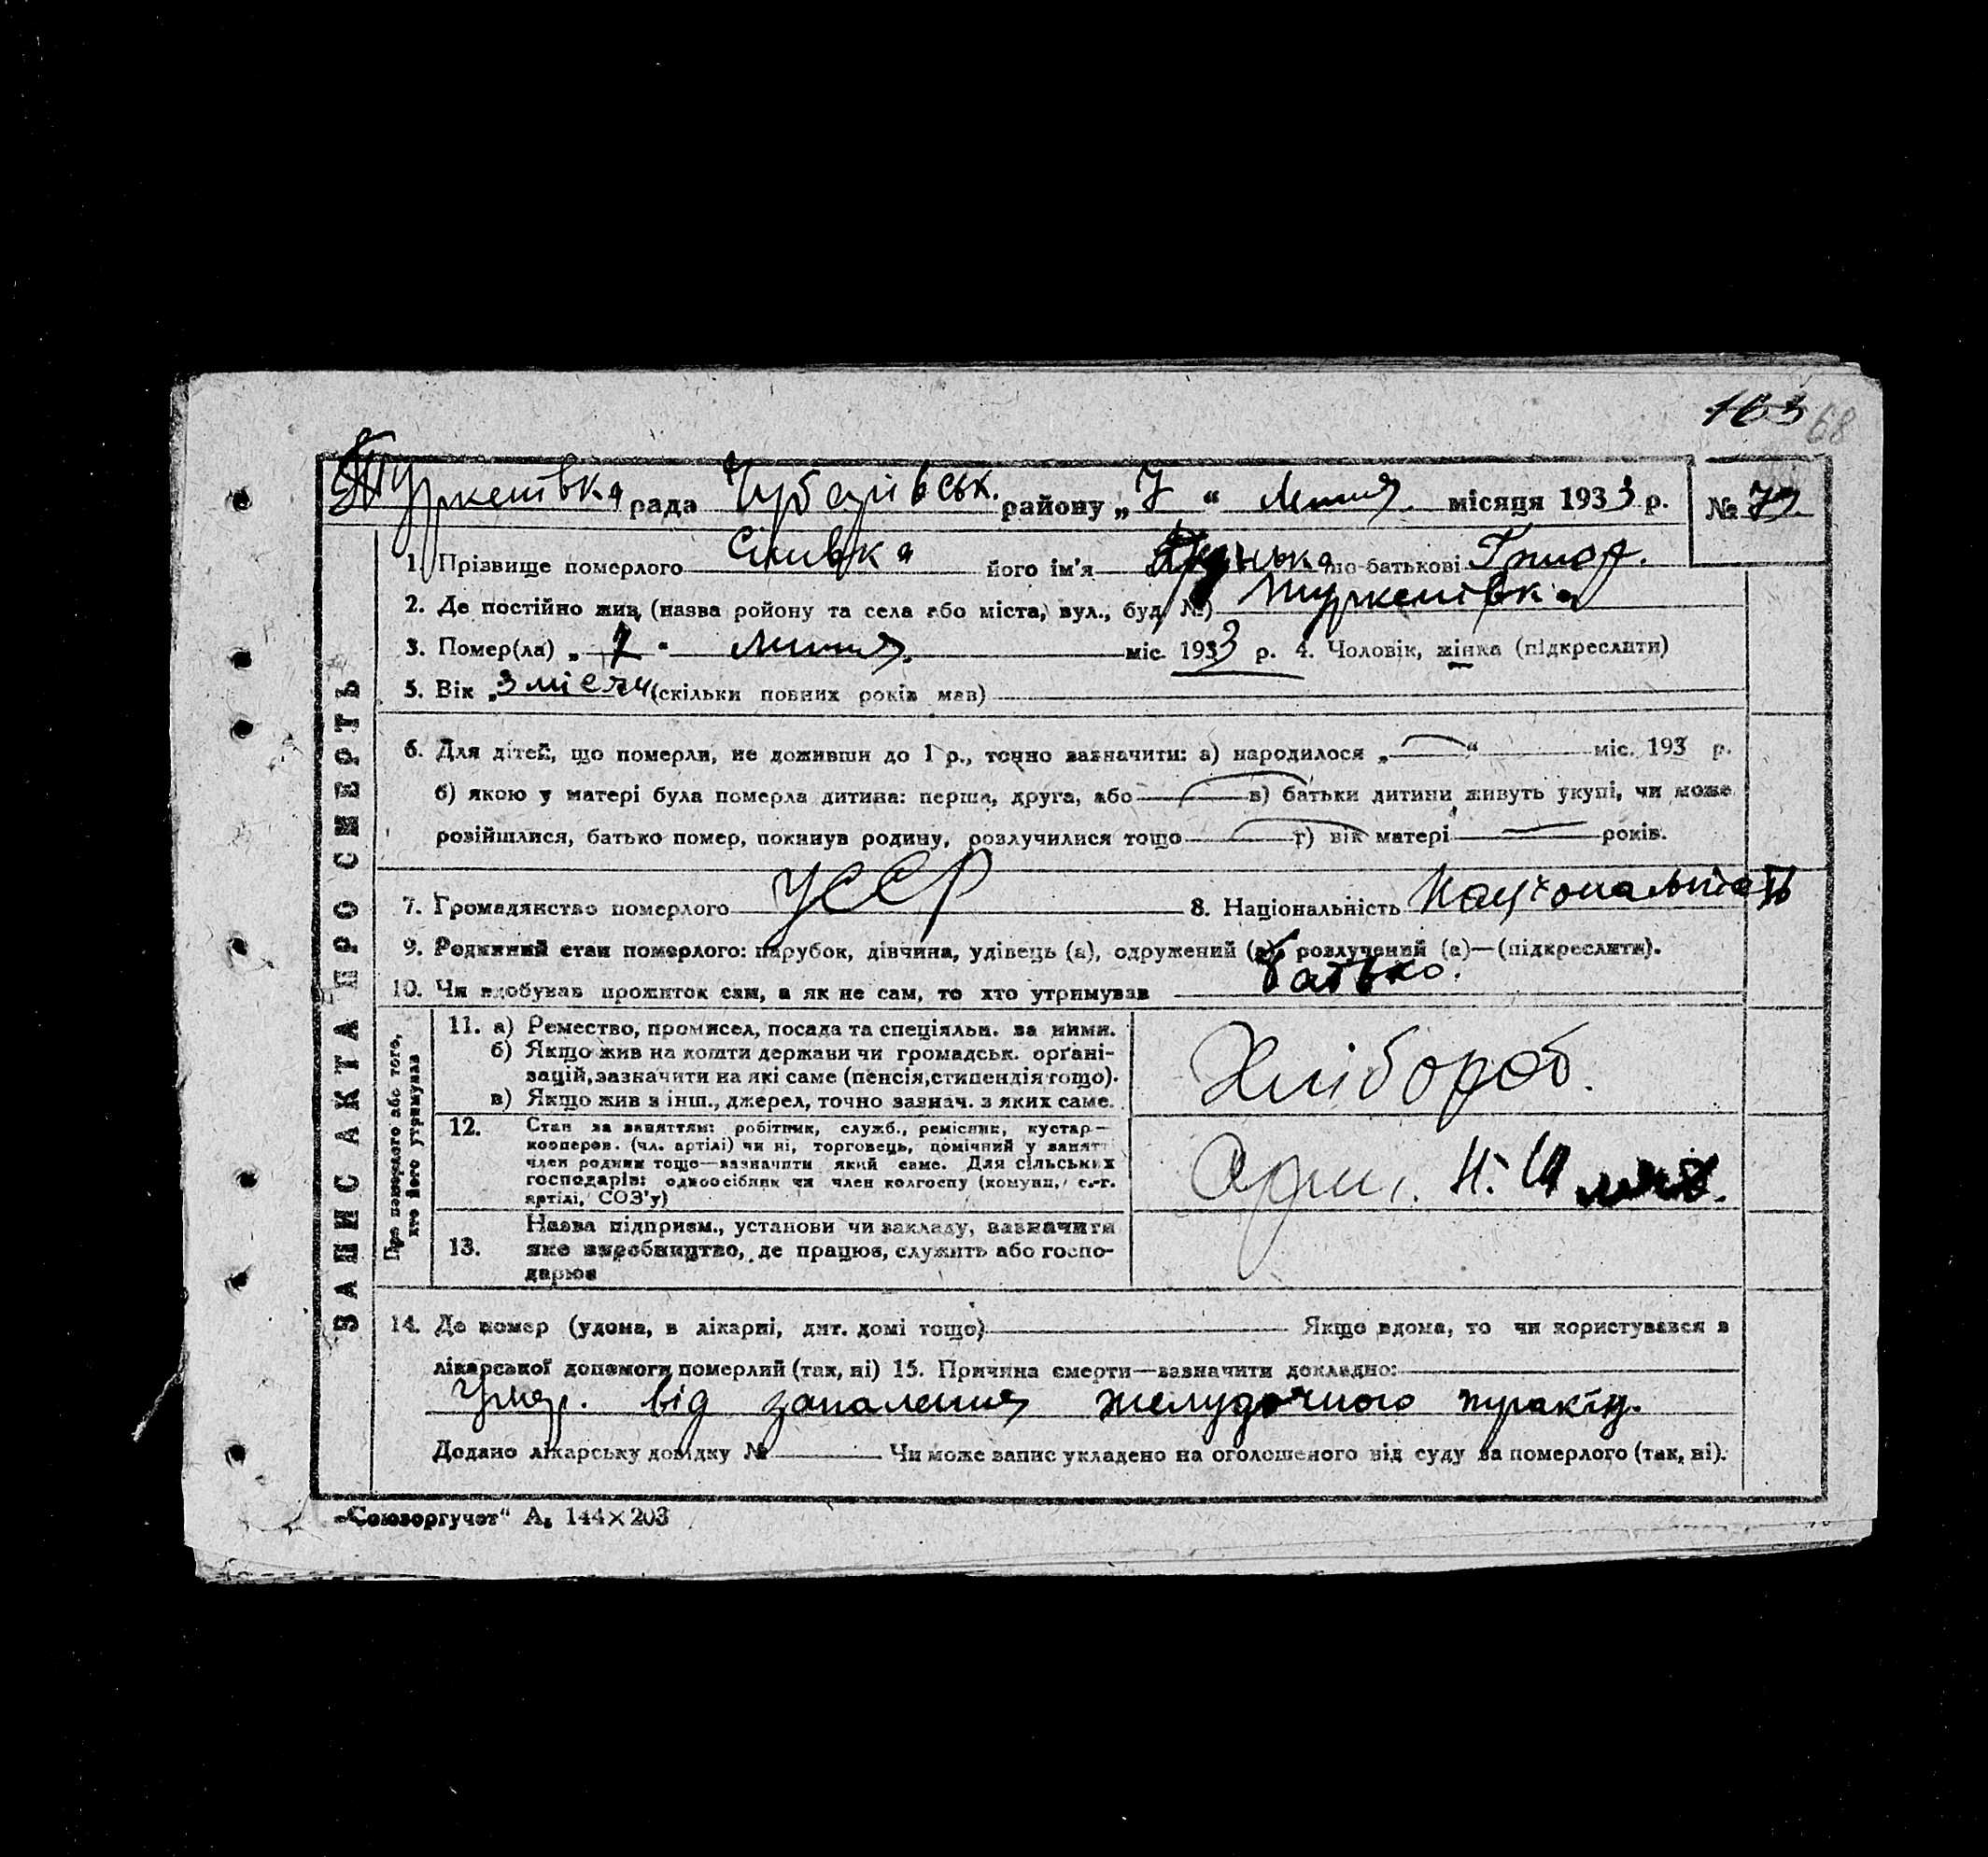 163 68
Туркенівка рада Чубарівськ. району „ 7 “ Липня місяця 1933 р. № 73.
1. Прізвище померлого Сливка його ім'я по-батькові
2. Де постійно жив (назва ройону та села або міста, вул., буд. №) Туркенівка
3. Помер(ла) „ 7 " липня. міс. 1933 р. 4. Чоловік, жінка (підкреслити)
5. Вік „ 3 місяци (скільки повних років мав)
6. Для дітей, що померли, не доживши до 1 р., точно зазначити: а) народилося „ “ міс. 193 р.
б) якою у матері була померла дитина: перша, друга, або в) батьки дитини живуть укупі, чи може
розійшлися, батько помер, покинув родину, розлучилися тощо г) вік матері років.
7. Громадянство померлого УССР 8. Національність
9. Родинний стан померлого: парубок, дівчина, удівець (а), одружений (а), розлучений (а)—(підкреслити).
10. Чи здобував прожиток сам, а як не сам, то хто утримував батько.
ЗАПИС АКТА ПРО СМЕРТЬ
Про померлого або того,
хто його утримував
11. а) Ремество, промисел, посада та спеціяльн. за ними.
б) Якщо жив на кошти держави чи громадськ. орґані-
зацій, зазначити на які саме (пенсія, стипендія тощо).
в) Якщо жив з інш., джерел, точно зазнач. з яких саме.
Хлібороб.
12. Стан за заняттям: робітник, служб., ремісник, кустар—
кооперов. (чл. артілі) чи ні, торговець, помічний у занятт
член родини тощо—зазначити який саме. Для сільських
господарів: одноосібник чи член колгоспу (комуни, с.-г.
артілі, СОЗ'у)
13. Назва підприєм., установи чи закладу, зазначити
яке виробництво, де працює, служить або госпо-
дарює
14. Де помер (удома, в лікарні, дит. домі тощо) Якщо вдома, то чи користувався з
лікарської допомоги померлий (так, ні) 15. Причина смерти—зазначити докладно:
Умер. від запалення желудочного тракту.
Додано лікарську довідку № Чи може запис укладено на оголошеного від суду за померлого (так, ні).
„Союзоргучет“ А₅ 144×203